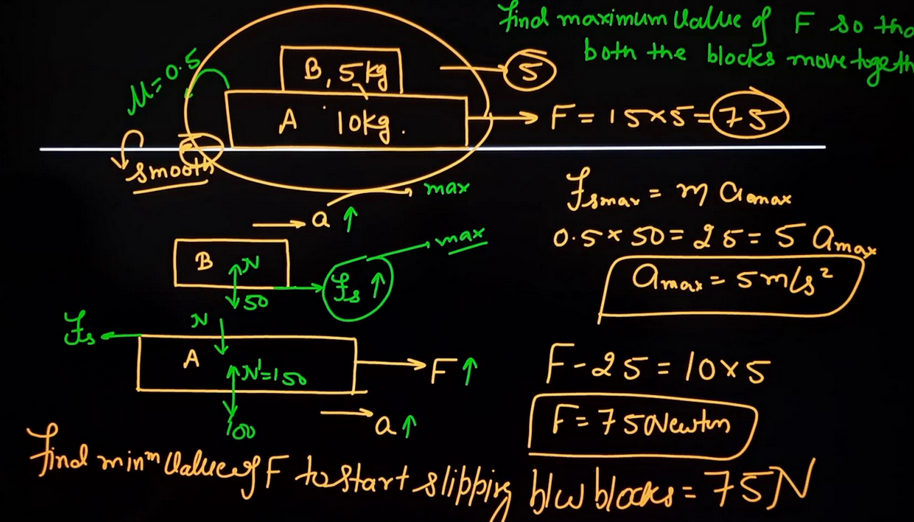 find maximum value of F so tha
both the blocks move togeth
μ=0.5
B, 5kg
5
A 10kg.
F = 15×5=75
smooth
max
fsmax = m amax
a ↑
max
0.5×50=25=5 amax
B
N
50
fs ↑
amax = 5m/s²
N
fs
A
N'=150
F ↑
F-25=10×5
100
a ↑
F=75Newton
find minᵐ value of F to start slipping b/w blocks=75N